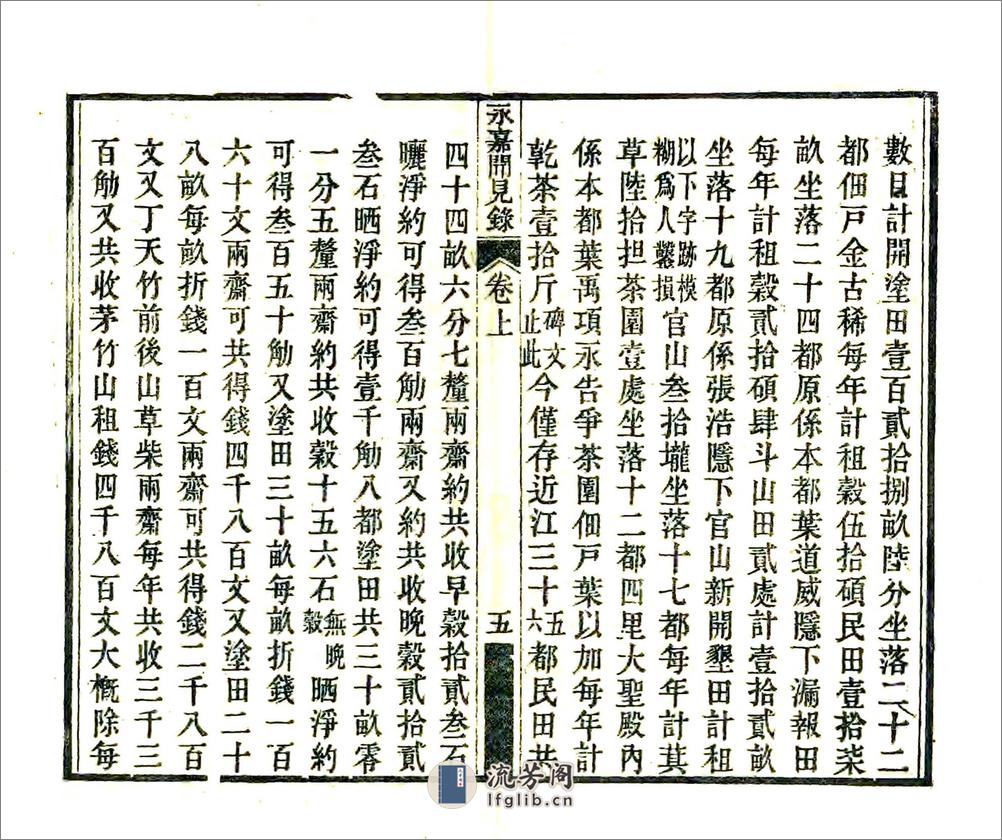 數目計開塗田壹百貳拾捌畝陸分坐落二十二
都佃戶金古稀每年計租穀伍拾碩民田壹拾柒
畝坐落二十四都原係本都葉道威隱下漏報田
每年計租穀貳拾碩肆斗山田貳處計壹拾貳畝
坐落十九都原係張浩隱下官山新開墾田計租
以下字跡模
糊爲人鑿損
官山叁拾壠坐落十七都每年計萁
草陸拾担茶園壹處坐落十二都四里大聖殿內
係本都葉禹項永告爭茶園佃戶葉以加每年計
乾茶壹拾斤
碑文
止此
今僅存近江三十
五
六
都民田共
永嘉聞見錄
卷上
五
四十四畝六分七釐兩齋約共收早穀拾貳叁石
曬淨約可得叁百觔兩齋又約共收晚穀貳拾貳
叁石晒淨約可得壹千觔八都塗田共三十畝零
一分五釐兩齋約共收穀十五六石
無晚
穀
晒淨約
可得叁百五十觔又塗田三十畝每畝折錢一百
六十文兩齋可共得錢四千八百文又塗田二十
八畝每畝折錢一百文兩齋可共得錢二千八百
文又丁天竹前後山草柴兩齋每年共收三千三
百觔又共收茅竹山租錢四千八百文大概除每
流芳阁
lfglib.cn